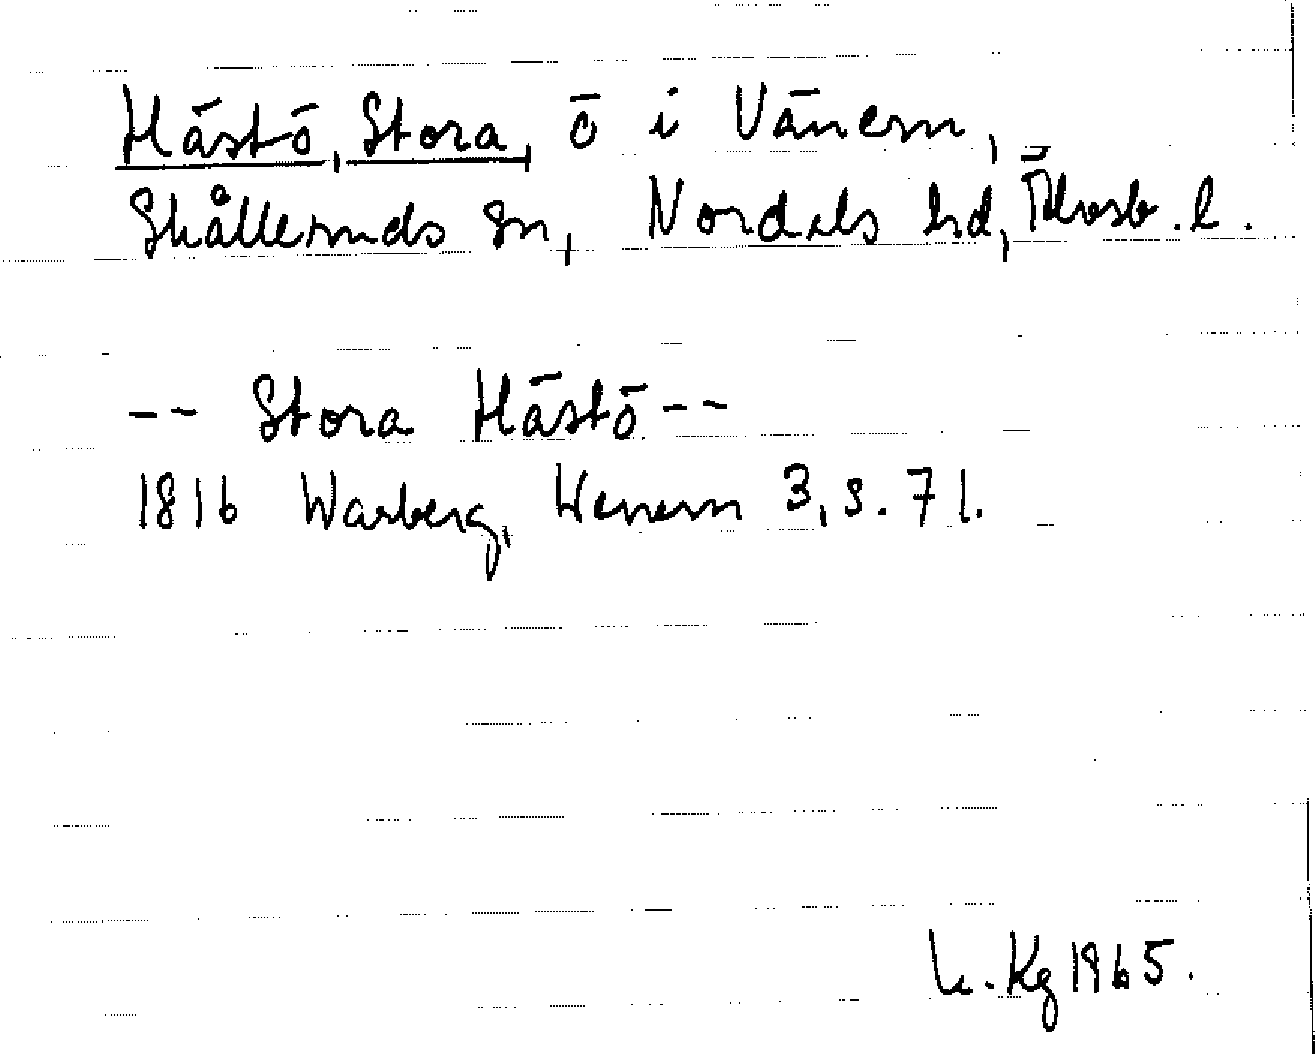 Hästö, Stora, ö i Vänern,
Skållernds sn, Nordals hd, Älvsb. l.
-- Stora Hästö --
1816 Warberg, Wenern 3, s. 71.
L. Kg 1965.